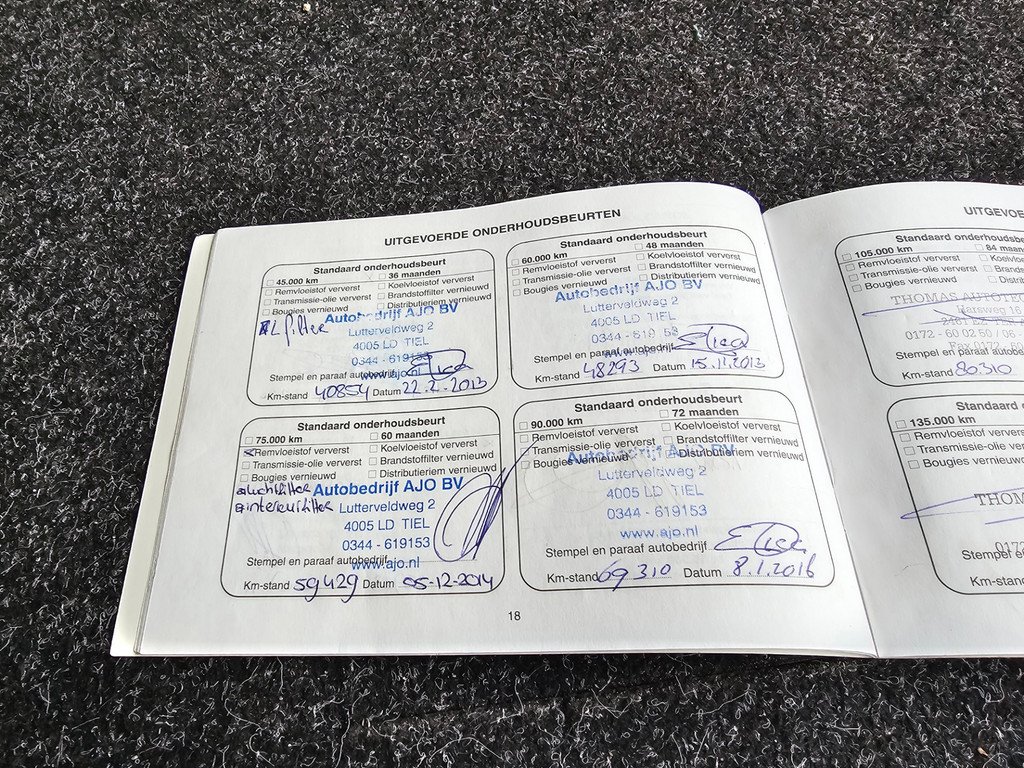 UITGEVOERDE ONDERHOUDSBEURTEN
Standaard onderhoudsbeurt
45.000 km
36 maanden
Remvloeistof ververst
Koelvloeistof ververst
Transmissie-olie ververst
Brandstoffilter vernieuwd
Bougies vernieuwd
Distributieriem vernieuwd
Autobedrijf AJO BV
Lutterveldweg 2
4005 LD TIEL
0344 - 619153
Stempel en paraaf autobedrijf
www.ajo.nl
Km-stand 40854 Datum 22.2.2013
Standaard onderhoudsbeurt
60.000 km
48 maanden
Remvloeistof ververst
Koelvloeistof ververst
Transmissie-olie ververst
Brandstoffilter vernieuwd
Bougies vernieuwd
Distributieriem vernieuwd
Autobedrijf AJO BV
Lutterveldweg 2
4005 LD TIEL
0344 - 619 53
Stempel en paraaf autobedrijf
Km-stand 48293 Datum 15.11.2013
Standaard onderhoudsbeurt
75.000 km
60 maanden
Remvloeistof ververst
Koelvloeistof ververst
Transmissie-olie ververst
Brandstoffilter vernieuwd
Bougies vernieuwd
Distributieriem vernieuwd
luchtfilter
interieurfilter
Autobedrijf AJO BV
Lutterveldweg 2
4005 LD TIEL
0344 - 619153
Stempel en paraaf autobedrijf
www.ajo.nl
Km-stand 59429 Datum 05-12-2014
Standaard onderhoudsbeurt
90.000 km
72 maanden
Remvloeistof ververst
Koelvloeistof ververst
Transmissie-olie ververst
Brandstoffilter vernieuwd
Bougies vernieuwd
Distributieriem vernieuwd
Autobedrijf AJO BV
Lutterveldweg 2
4005 LD TIEL
0344 - 619153
www.ajo.nl
Stempel en paraaf autobedrijf
Km-stand 69310 Datum 8.1.2016
18
UITGEVOE
Standaard onderhoudsb
105.000 km
84 maa
Remvloeistof ververst
Koelv
Transmissie-olie ververst
Brands
Bougies vernieuwd
Distri
THOMAS AUTOTE
Hersweg 16
0172 - 60 92 50 / 06 -
Fax 0172 - 60
Stempel en paraaf autobe
Km-stand 80310
Standaard o
135.000 km
Remvloeistof ververst
Transmissie-olie ververst
Bougies vernieuwd
THOM
0172
Stempel en paraaf
Km-stand